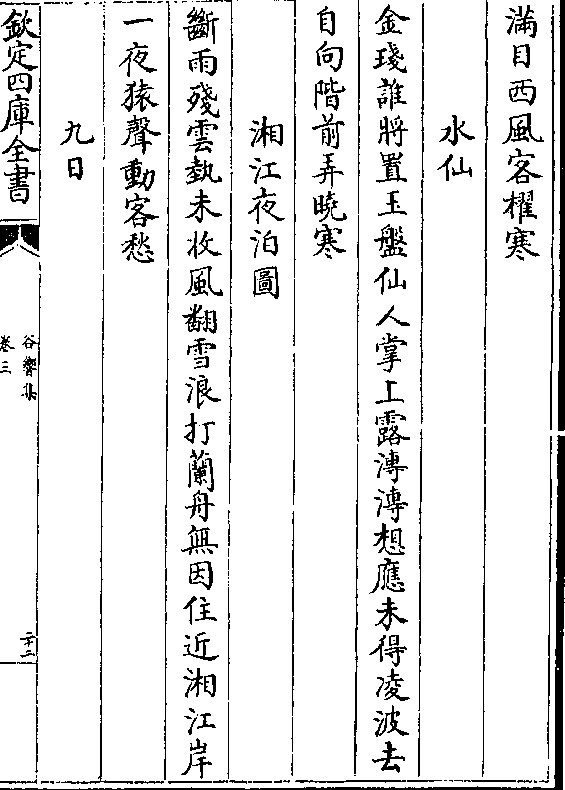 滿目西風客櫂寒
水仙
金琖誰將置玉盤仙人掌上露漙漙想應未得凌波去
自向階前弄曉寒
湘江夜泊圖
斷雨殘雲埶未收風翻雪浪打蘭舟無因住近湘江岸
一夜猿聲動客愁
九日
欽定四庫全書
谷響集
卷三
二十二